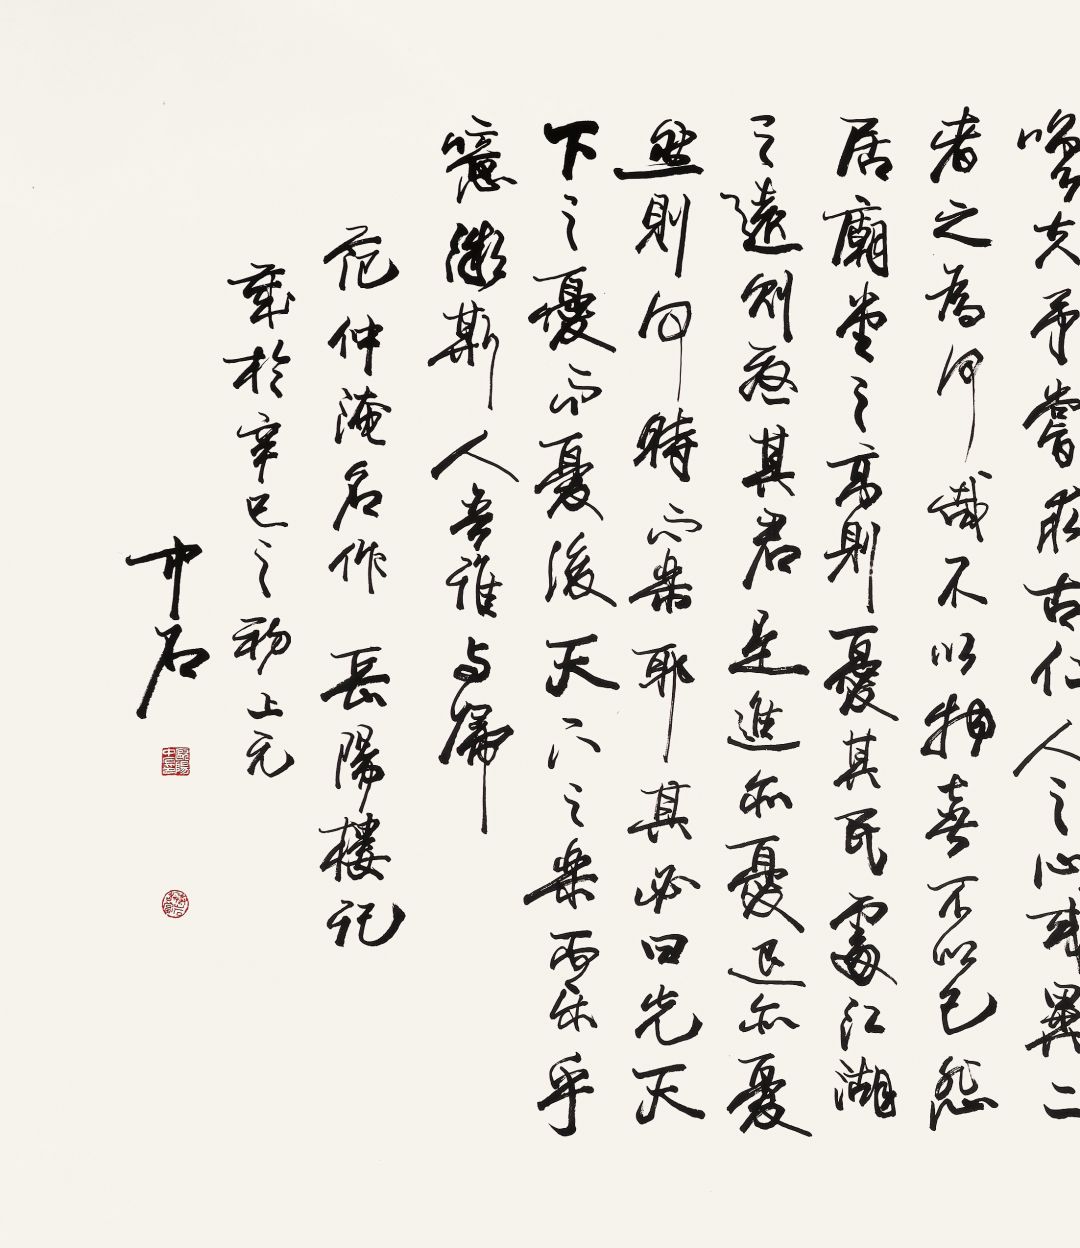 嗟夫予嘗求古仁人之心或異二
者之為何哉不以物喜不以己悲
居廟堂之高則憂其民處江湖
之遠則憂其君是進亦憂退亦憂
然則何時而樂耶其必曰先天
下之憂而憂後天下之樂而樂乎
噫微斯人吾誰与歸
范仲淹名作 岳陽樓記
歲於辛巳之初上元
中石